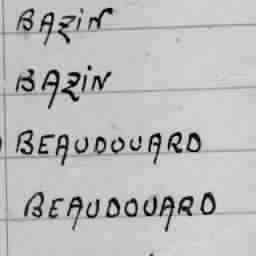 BAZIN
BAZIN
BEAUDOUARD
BEAUDOUARD